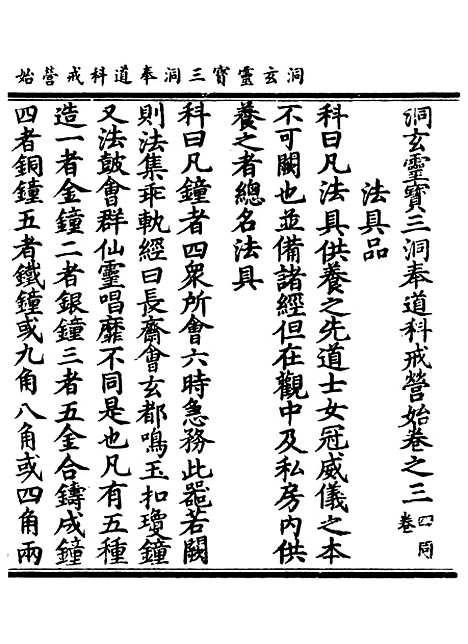 洞玄靈寶三洞奉道科戒營始
洞玄靈寶三洞奉道科戒營始卷之三 四同卷
法具品
科曰凡法具供養之先道士女冠威儀之本
不可闕也並備諸經但在觀中及私房內供
養之者總名法具
科曰凡鐘者四衆所會六時急務此器若闕
則法集乖軌經曰長齋會玄都鳴玉扣瓊鐘
又法鼓會群仙靈唱靡不同是也凡有五種
造一者金鐘二者銀鐘三者五金合鑄成鐘
四者銅鐘五者鐵鐘或九角八角或四角兩